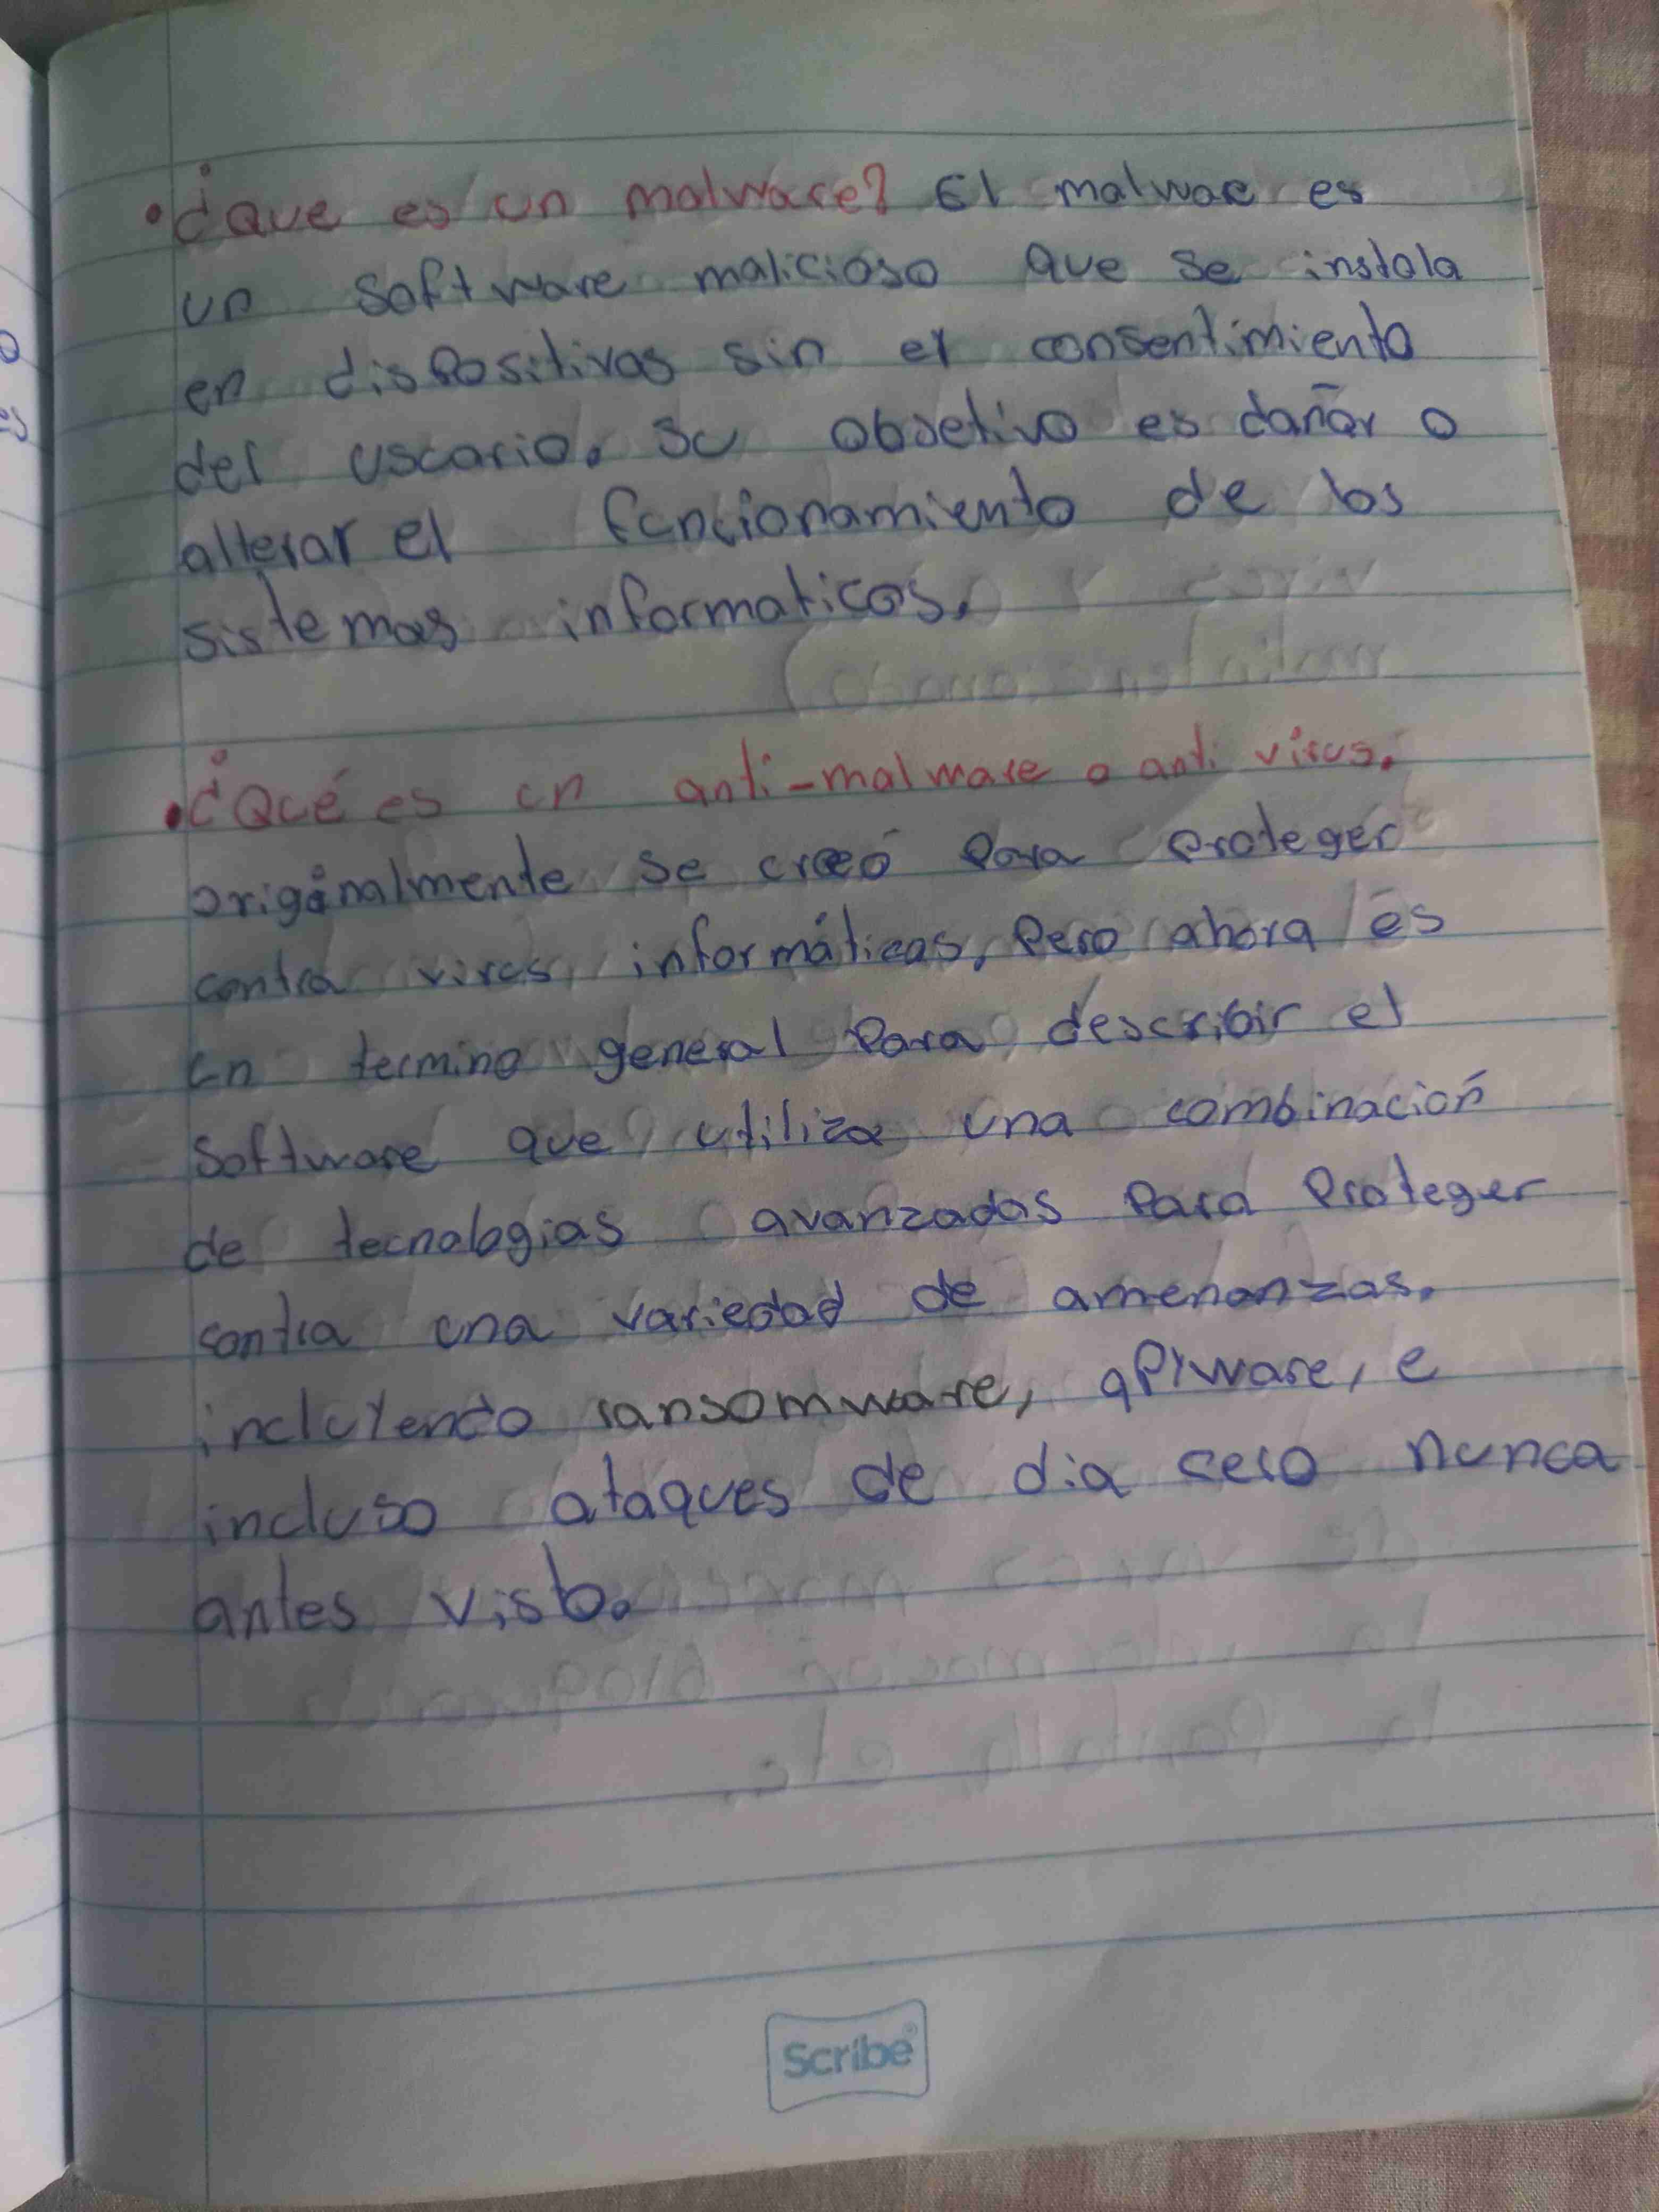 • ¿que es un malware? El malwae es
un software malicioso que se instala
en dispositivos sin el consentimiento
del uscario. su objetivo es dañar o
alterar el funcionamiento de los
sistemas informaticos.
• ¿Qué es un anti-malware o anti virus.
originalmente se creó para proteger
contra virus informáticas, pero ahora es
un termino general para describir el
software que utiliza una combinación
de tecnologias avanzadas para proteger
contra una variedad de amenanzas.
incluyendo ransomware, e
incluso ataques de dia cero nunca
antes visto.
Scribe